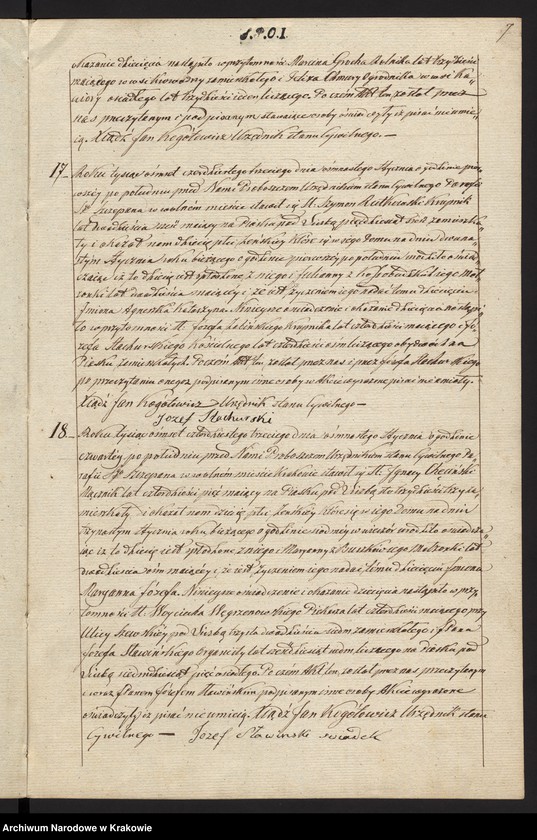 S.P.O.I.
7
okazanie dziecięcia nastąpiło w przytomności Marcina Grocha Rolnika lat trzydzieści
mającego w wsi zamieszkałego i Felixa Ogrodnika w wsi Ka-
wiory osiadłego lat trzydzieści jeden liczącego. Po czém Akt ten został przez
nas przeczytanym i podpisanym stawające osoby oświadczyły iż pisać nieumie-
ią. Xiądz Jan Rogólewicz Urzędnik stanu cywilnego.—
17 Roku tysiąc ośmset czterdziestego trzeciego dnia ośmnastego Stycznia o godzinie pier-
wszéj po południu przed Nami Proboszczem Urzędnikiem stanu Cywilnego Parafii
Sgo Szczepana w wolném mieście stawił się St. Szymon Rutkowski Krupnik
lat dwadzieścia sześć mający na Piasku pod Liczbą pięćdziesiąt zamieszka-
ły i okazał nam dziécię płci żeńskiej które się w jego Domu na dniu dwuna-
stym Stycznia roku bieżącego o godzinie pierwszéj po południu urodziło oświad-
czając iż to dziécię jest spłodzone z niego i Julianny z jego Mał-
żonki lat dwadzieścia mającéj i że jest życzeniem jego nadać temu dziecięciu
Imiona Agnieszka Katarzyna. Niniejsze oświadczenie i okazanie dziecięcia nastąpi-
ło w przytomności St. Józefa Krupnika lat czterdzieści mającego i Jó-
zefa Stachurskiego Kościelnego lat czterdzieści ośm liczącego obydwóch na
Piasku zamieszkałych. Po czém Akt ten został przez nas i przez Józefa Stachurskiego
po przeczytaniu onegoż podpisanym inne osoby w Akcie wyrażone pisać nieumiały.
Xiądz Jan Rogólewicz Urzędnik stanu Cywilnego —
Józef Stachurski
18 Roku tysiąc ośmset czterdziestego trzeciego dnia ośmnastego Stycznia o godzinie
czwartéj po południu przed Nami Proboszczem Urzędnikiem stanu Cywilnego Pa-
rafii Sgo Szczepana w wolném mieście Krakowie stawił się St. Ignacy Chęciński
Mącznik lat czterdzieści pięć mający na Piasku pod Liczbą sto trzydzieści trzy za-
mieszkały i okazał nam dziécię płci żeńskiéj które się w jego Domu na dniu
trzynastym Stycznia roku bieżącego o godzinie siódméj w wieczór urodziło oświadcza-
jąc iż to dziécię jest spłodzone z niego i Maryanny z jego Małżonki lat
dwadzieścia ośm mającéj i że jest życzeniem jego nadać temu dziecięciu Imiona
Maryanna Józefa. Niniejsze oświadczenie i okazanie dziecięcia nastąpiło w przy-
tomności St. Wojciecha Węgrzenowskiego Piekarza lat czterdzieści mającego przy
Ulicy pod Liczbą trzysta dwadzieścia siedm zamieszkałego i Pana
Józefa Sławińskiego Organisty lat siedmdziesiąt liczącego na Piasku pod
Liczbą siedmdziesiąt pięć osiadłego. Po czém Akt ten został przez nas przeczytanym
i wraz z Panem Józefem Sławińskim podpisanym inne osoby w Akcie wyrażone
oświadczyły iż pisać nieumieią. Xiądz Jan Rogólewicz Urzędnik stanu
Cywilnego — Jozef Sławinski swiadek
Archiwum Narodowe w Krakowie